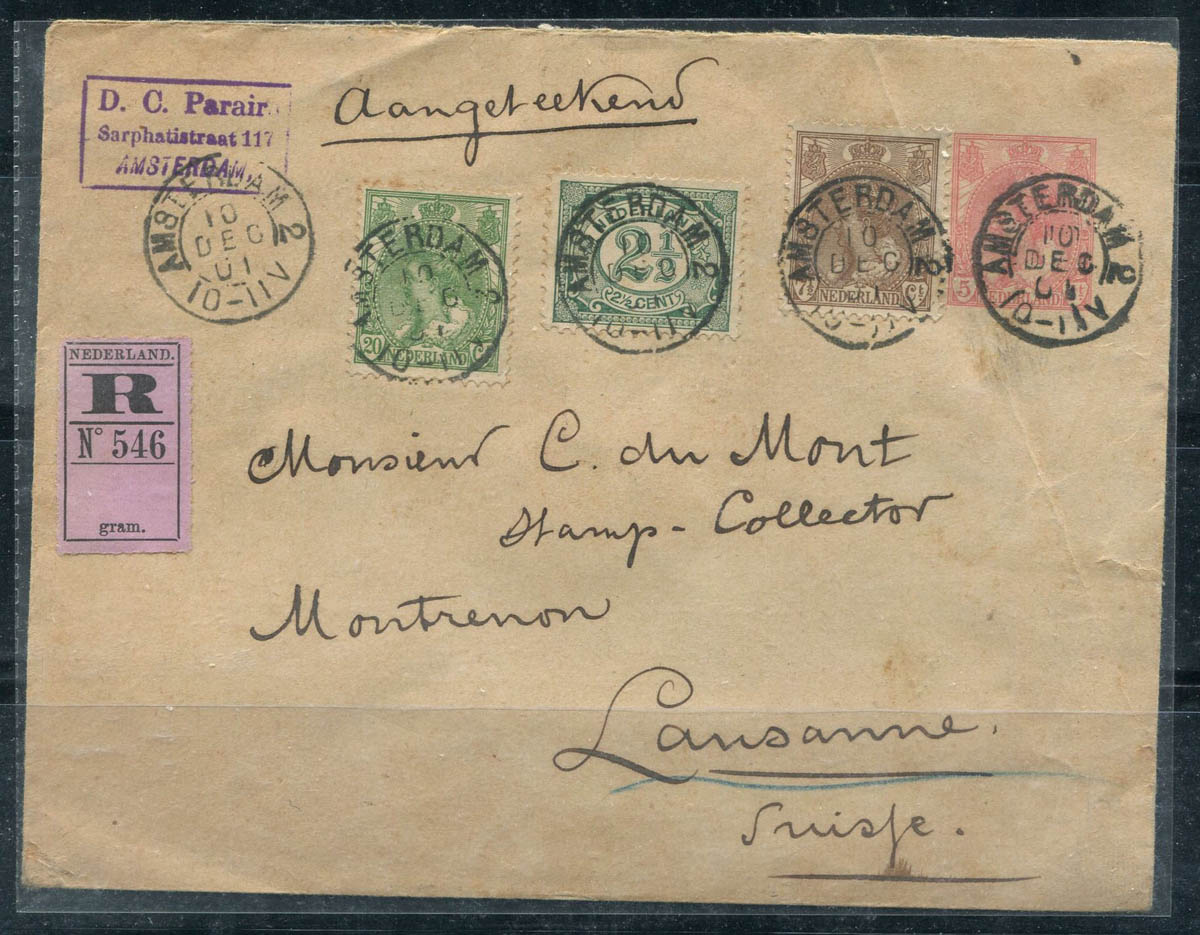 D. C. Parair.
Sarphatistraat 117
AMSTERDAM.
Aangeteekend
AMSTERDAM 2
10
DEC
01
10-11V
20 NEDERLAND Ct
AMSTERDAM 2
10
DEC
NEDERLAND
2½
2½ CENT
AMSTERDAM 2
10-11V
7½ NEDERLAND Ct
AMSTERDAM 2
10
DEC
5
AMSTERDAM 2
10
DEC
01
10-11V
NEDERLAND.
R
N° 546
gram.
Monsieur C. du Mont
Stamp-Collector
Montrenon
Lausanne.
Suisse.